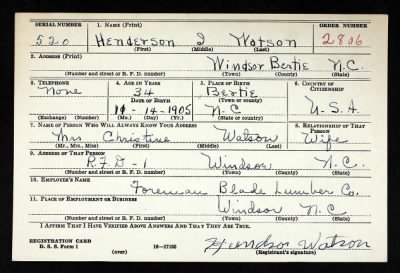 SERIAL NUMBER 1. NAME (Print) ORDER NUMBER
520 Henderson I Watson 2806
(First) (Middle) (Last)
2. ADDRESS (Print)
Windsor Bertie N.C.
(Number and street or R. F. D. number) (Town) (County) (State)
3. TELEPHONE 4. AGE IN YEARS 5. PLACE OF BIRTH 6. COUNTRY OF CITIZENSHIP
None 34 Bertie
DATE OF BIRTH (Town or county)
10-14-1905 N.C U.S.A.
(Exchange) (Number) (Mo.) (Day) (Yr.) (State or country)
7. NAME OF PERSON WHO WILL ALWAYS KNOW YOUR ADDRESS 8. RELATIONSHIP OF THAT PERSON
Mrs Christine Watson Wife
(Mr., Mrs., Miss) (First) (Middle) (Last)
9. ADDRESS OF THAT PERSON
R.F.D-1 Windsor N.C.
(Number and street or R. F. D. number) (Town) (County) (State)
10. EMPLOYER'S NAME
Foreman Blade Lumber Co.
11. PLACE OF EMPLOYMENT OR BUSINESS
Windsor N.C.
(Number and street or R. F. D. number) (Town) (County) (State)
I AFFIRM THAT I HAVE VERIFIED ABOVE ANSWERS AND THAT THEY ARE TRUE.
REGISTRATION CARD
D. S. S. Form 1 16-17105 Watson
(over) (Registrant's signature)